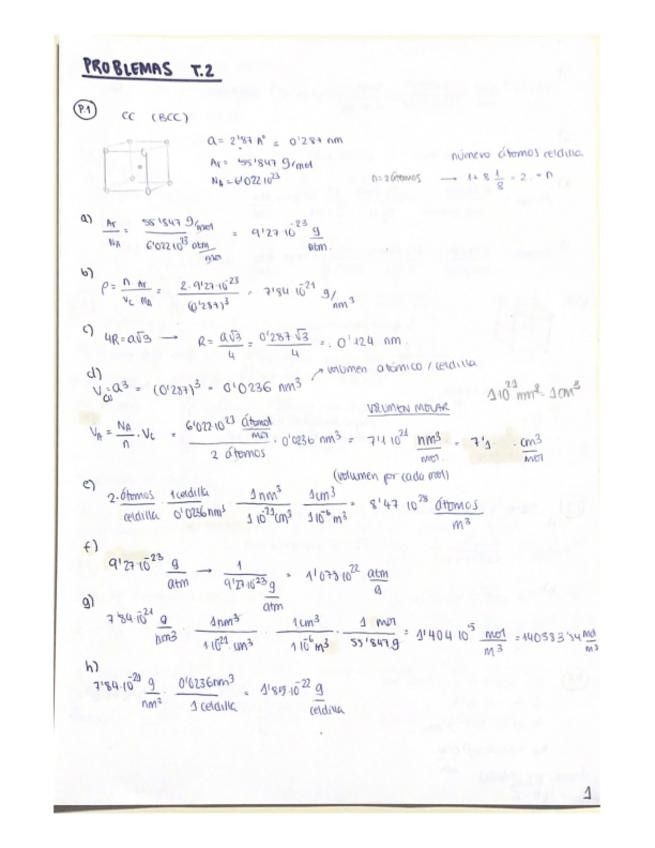 PROBLEMAS T.2
P.1 CC (BCC)
a = 2'87 Aº = 0'287 nm
Ar = 55'847 g/mol
NA = 6'022 10^23
número átomos celdilla
n = 2 átomos → 1 + 8 1/8 = 2 = n
a) Ar/NA = 55'847 g/mol / 6'022 10^23 atm/mol = 9'27 · 10^-23 g/atm.
b) ρ = n Ar / Vc NA = 2 · 9'27 · 10^-23 / (0'287)^3 = 7'84 · 10^-21 g/nm^3
c) 4R = a√3 → R = a√3/4 = 0'287 √3/4 = 0'124 nm.
d) → volumen atómico / celdilla
V = a^3 = (0'287)^3 = 0'0236 nm^3
1 10^21 nm^3 = 1 cm^3
VOLUMEN MOLAR
VA = NA/n · Vc = 6'022 10^23 átomos/mol / 2 átomos · 0'0236 nm^3 = 7'1 10^21 nm^3/mol = 7'1 cm^3/mol
(volumen por cada mol)
e) 2 átomos/celdilla · 1 celdilla/0'0236 nm^3 · 1 nm^3/1 10^-21 cm^3 · 1 cm^3/1 10^-6 m^3 = 8'47 10^28 átomos/m^3
f) 9'27 · 10^-23 g/atm → 1 / 9'27 · 10^-23 g/atm = 1'079 10^22 atm/g
g) 7'84 · 10^-21 g/nm^3 · 1 nm^3/1 10^-21 cm^3 · 1 cm^3/1 10^-6 m^3 · 1 mol/55'847 g = 1'404 10^5 mol/m^3 = 140383'34 mol/m^3
h) 7'84 · 10^-21 g/nm^3 · 0'0236 nm^3/1 celdilla = 1'85 · 10^-22 g/celdilla
1